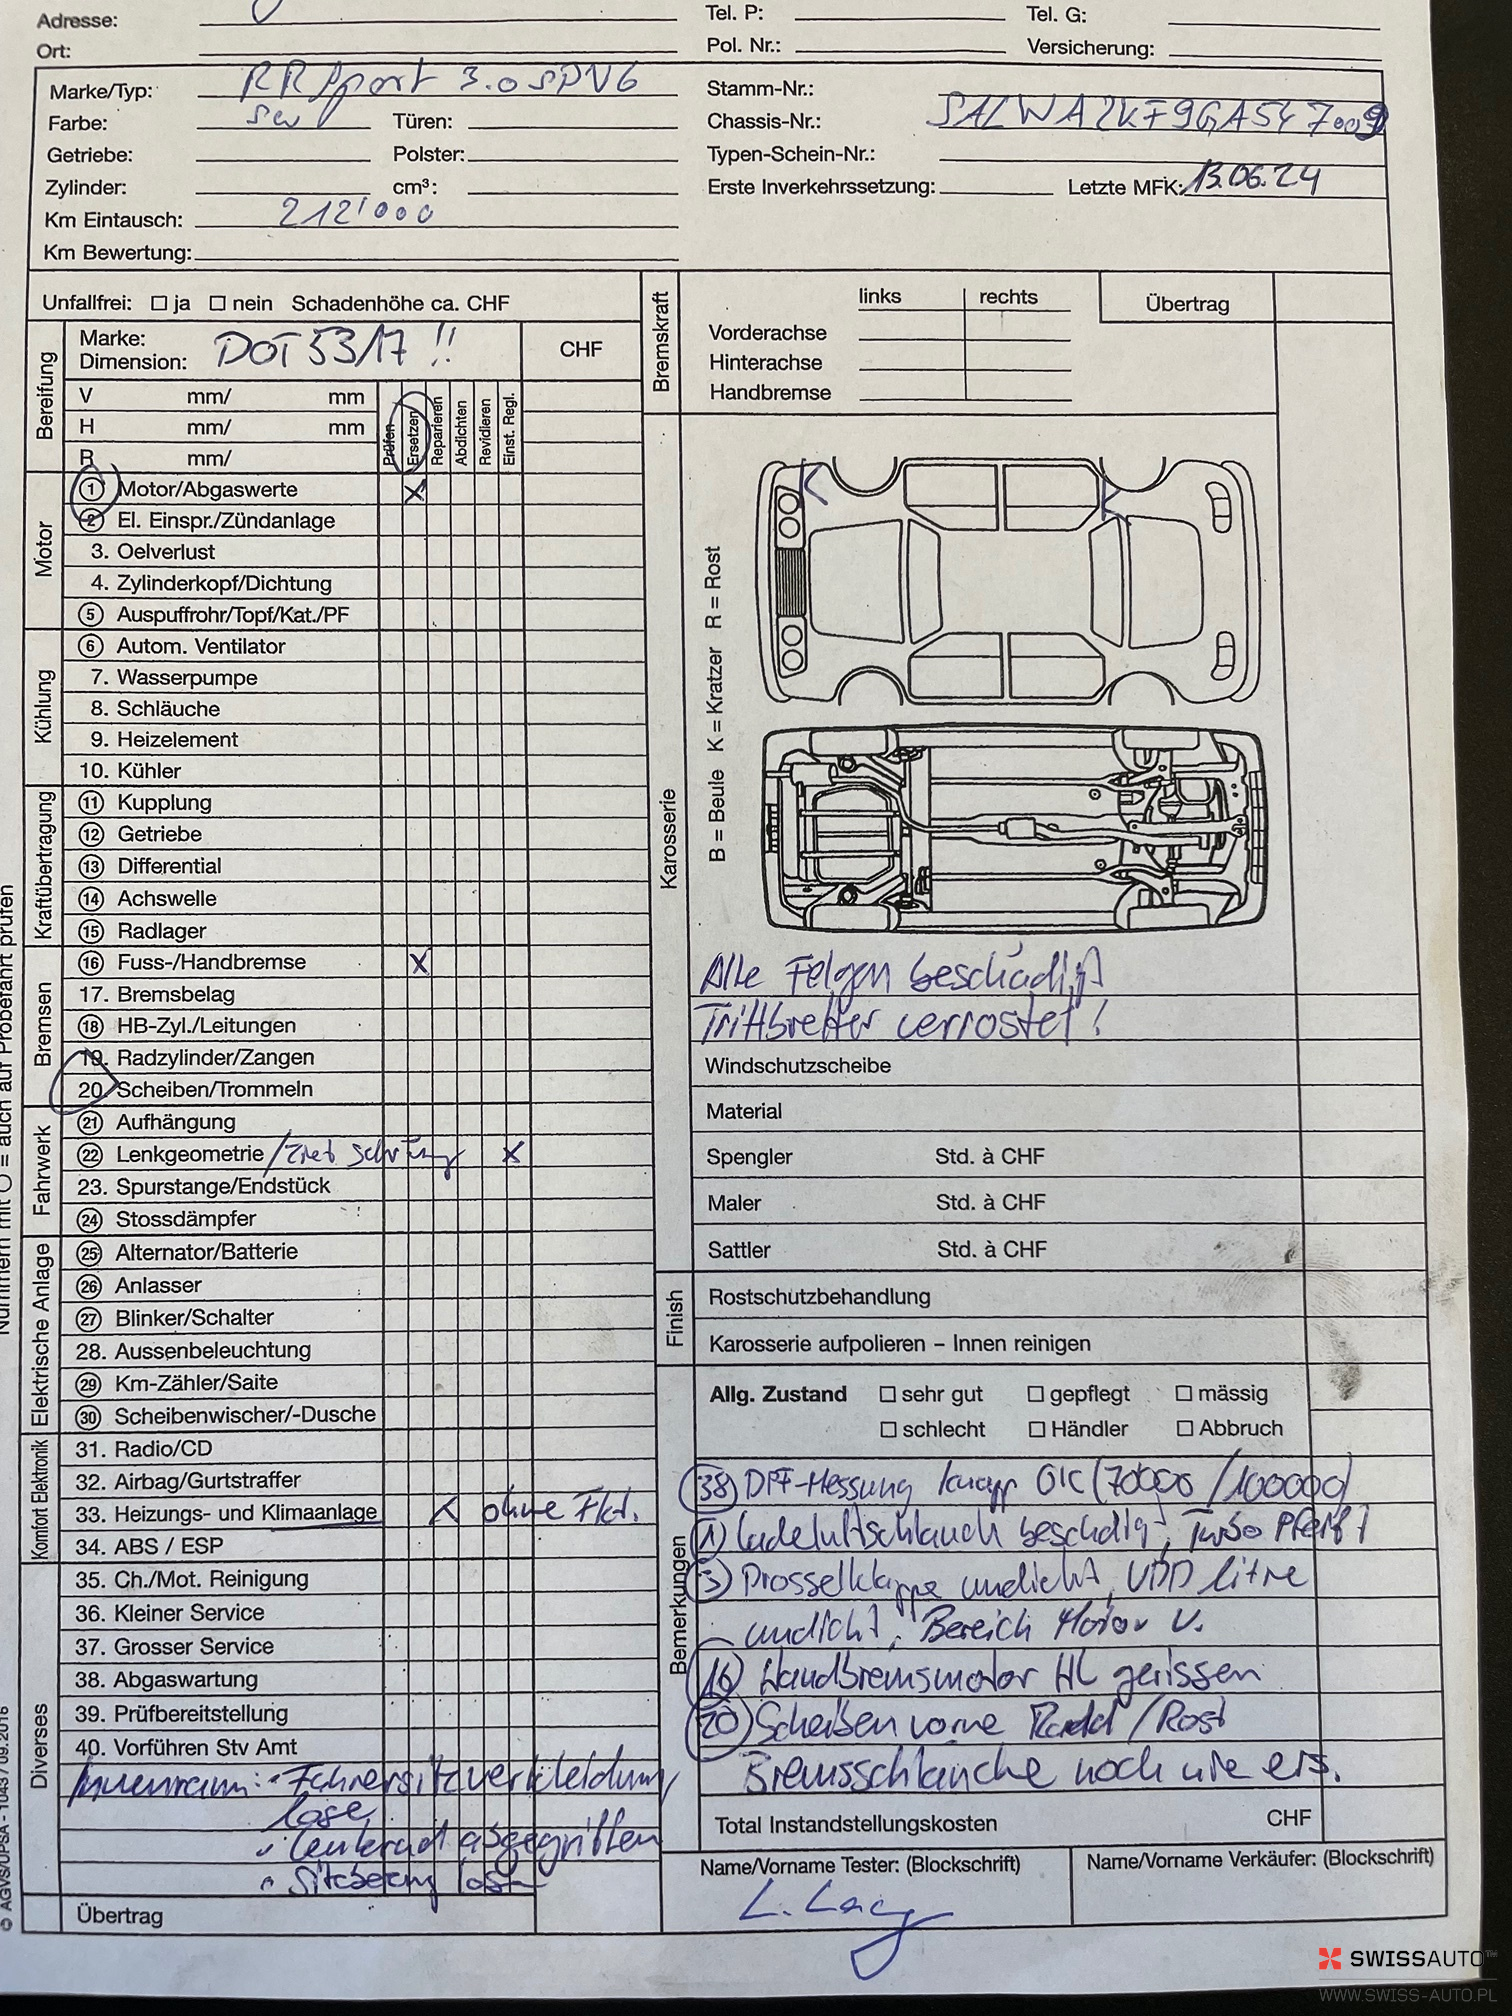 Adresse: Tel. P: Tel. G:
Ort: Pol. Nr.: Versicherung:
Marke/Typ: RR Sport 3.0 SDV6 Stamm-Nr.:
Farbe: sw Türen: Chassis-Nr.: SALWA2KF9GA547009
Getriebe: Polster: Typen-Schein-Nr.:
Zylinder: cm³: Erste Inverkehrssetzung: Letzte MFK: 13.06.24
Km Eintausch: 212'000
Km Bewertung:
Unfallfrei: ja nein Schadenhöhe ca. CHF
Bereifung
Marke:
Dimension: DOT 5317 !!
CHF
V mm/ mm
H mm/ mm
R mm/
Prüfen
Ersetzen
Reparieren
Abdichten
Revidieren
Einst. Regl.
Motor
1 Motor/Abgaswerte X
2 El. Einspr./Zündanlage
3. Oelverlust
4. Zylinderkopf/Dichtung
5 Auspuffrohr/Topf/Kat./PF
Kühlung
6 Autom. Ventilator
7. Wasserpumpe
8. Schläuche
9. Heizelement
10. Kühler
Kraftübertragung
11 Kupplung
12 Getriebe
13 Differential
14 Achswelle
15 Radlager
Bremsen
16 Fuss-/Handbremse X
17. Bremsbelag
18 HB-Zyl./Leitungen
19. Radzylinder/Zangen
20. Scheiben/Trommeln
Fahrwerk
21 Aufhängung
22 Lenkgeometrie X
23. Spurstange/Endstück
24 Stossdämpfer
Elektrische Anlage
25 Alternator/Batterie
26 Anlasser
27 Blinker/Schalter
28. Aussenbeleuchtung
29 Km-Zähler/Saite
30 Scheibenwischer/-Dusche
Komfort Elektronik
31. Radio/CD
32. Airbag/Gurtstraffer
33. Heizungs- und Klimaanlage X ohne Fkt.
34. ABS / ESP
Diverses
35. Ch./Mot. Reinigung
36. Kleiner Service
37. Grosser Service
38. Abgaswartung
39. Prüfbereitstellung
40. Vorführen Stv Amt
Innenraum: - Fahrersitzverkleidung
lose
- Lenkrad abgegriffen
- lose
Übertrag
Nummern mit O = auch auf Probefahrt prüfen
© AGVS/UPSA - 1043 / 09.2016
Bremskraft
links rechts
Vorderachse
Hinterachse
Handbremse
Übertrag
Karosserie
B = Beule K = Kratzer R = Rost
K K
Alle Felgen beschädigt
Trittbretter verrostet!
Windschutzscheibe
Material
Spengler Std. à CHF
Maler Std. à CHF
Sattler Std. à CHF
Finish
Rostschutzbehandlung
Karosserie aufpolieren – Innen reinigen
Allg. Zustand sehr gut gepflegt mässig
schlecht Händler Abbruch
Bemerkungen
38 DPF-Messung knapp OK (70000 / 100000)
1 Ladeluftschlauch beschädigt, Turbo Pfeift
3 Drosselklappe undicht, litre
undicht, Bereich Motor V.
16 Handbremsmotor HL gerissen
20 Scheiben vorne Rand / Rost
Bremsschläuche noch nie ers.
Total Instandstellungskosten CHF
Name/Vorname Tester: (Blockschrift) Name/Vorname Verkäufer: (Blockschrift)
SWISSAUTO™
WWW.SWISS-AUTO.PL